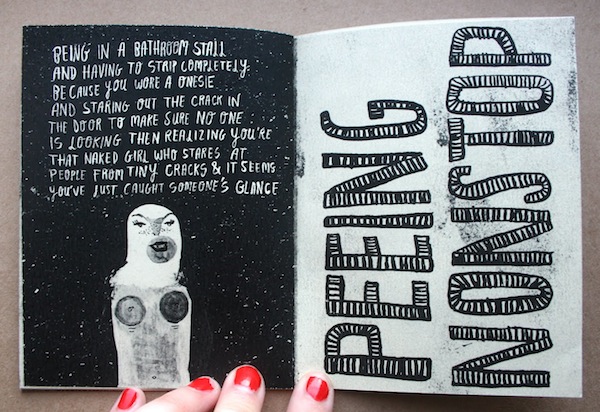 BEING IN A BATHROOM STALL
AND HAVING TO STRIP COMPLETELY
BECAUSE YOU WORE A ONESIE
AND STARING OUT THE CRACK IN
THE DOOR TO MAKE SURE NO ONE
IS LOOKING THEN REALIZING YOU'RE
THAT NAKED GIRL WHO STARES AT
PEOPLE FROM TINY CRACKS & IT SEEMS
YOU'VE JUST CAUGHT SOMEONE'S GLANCE
PEEING
NONSTOP